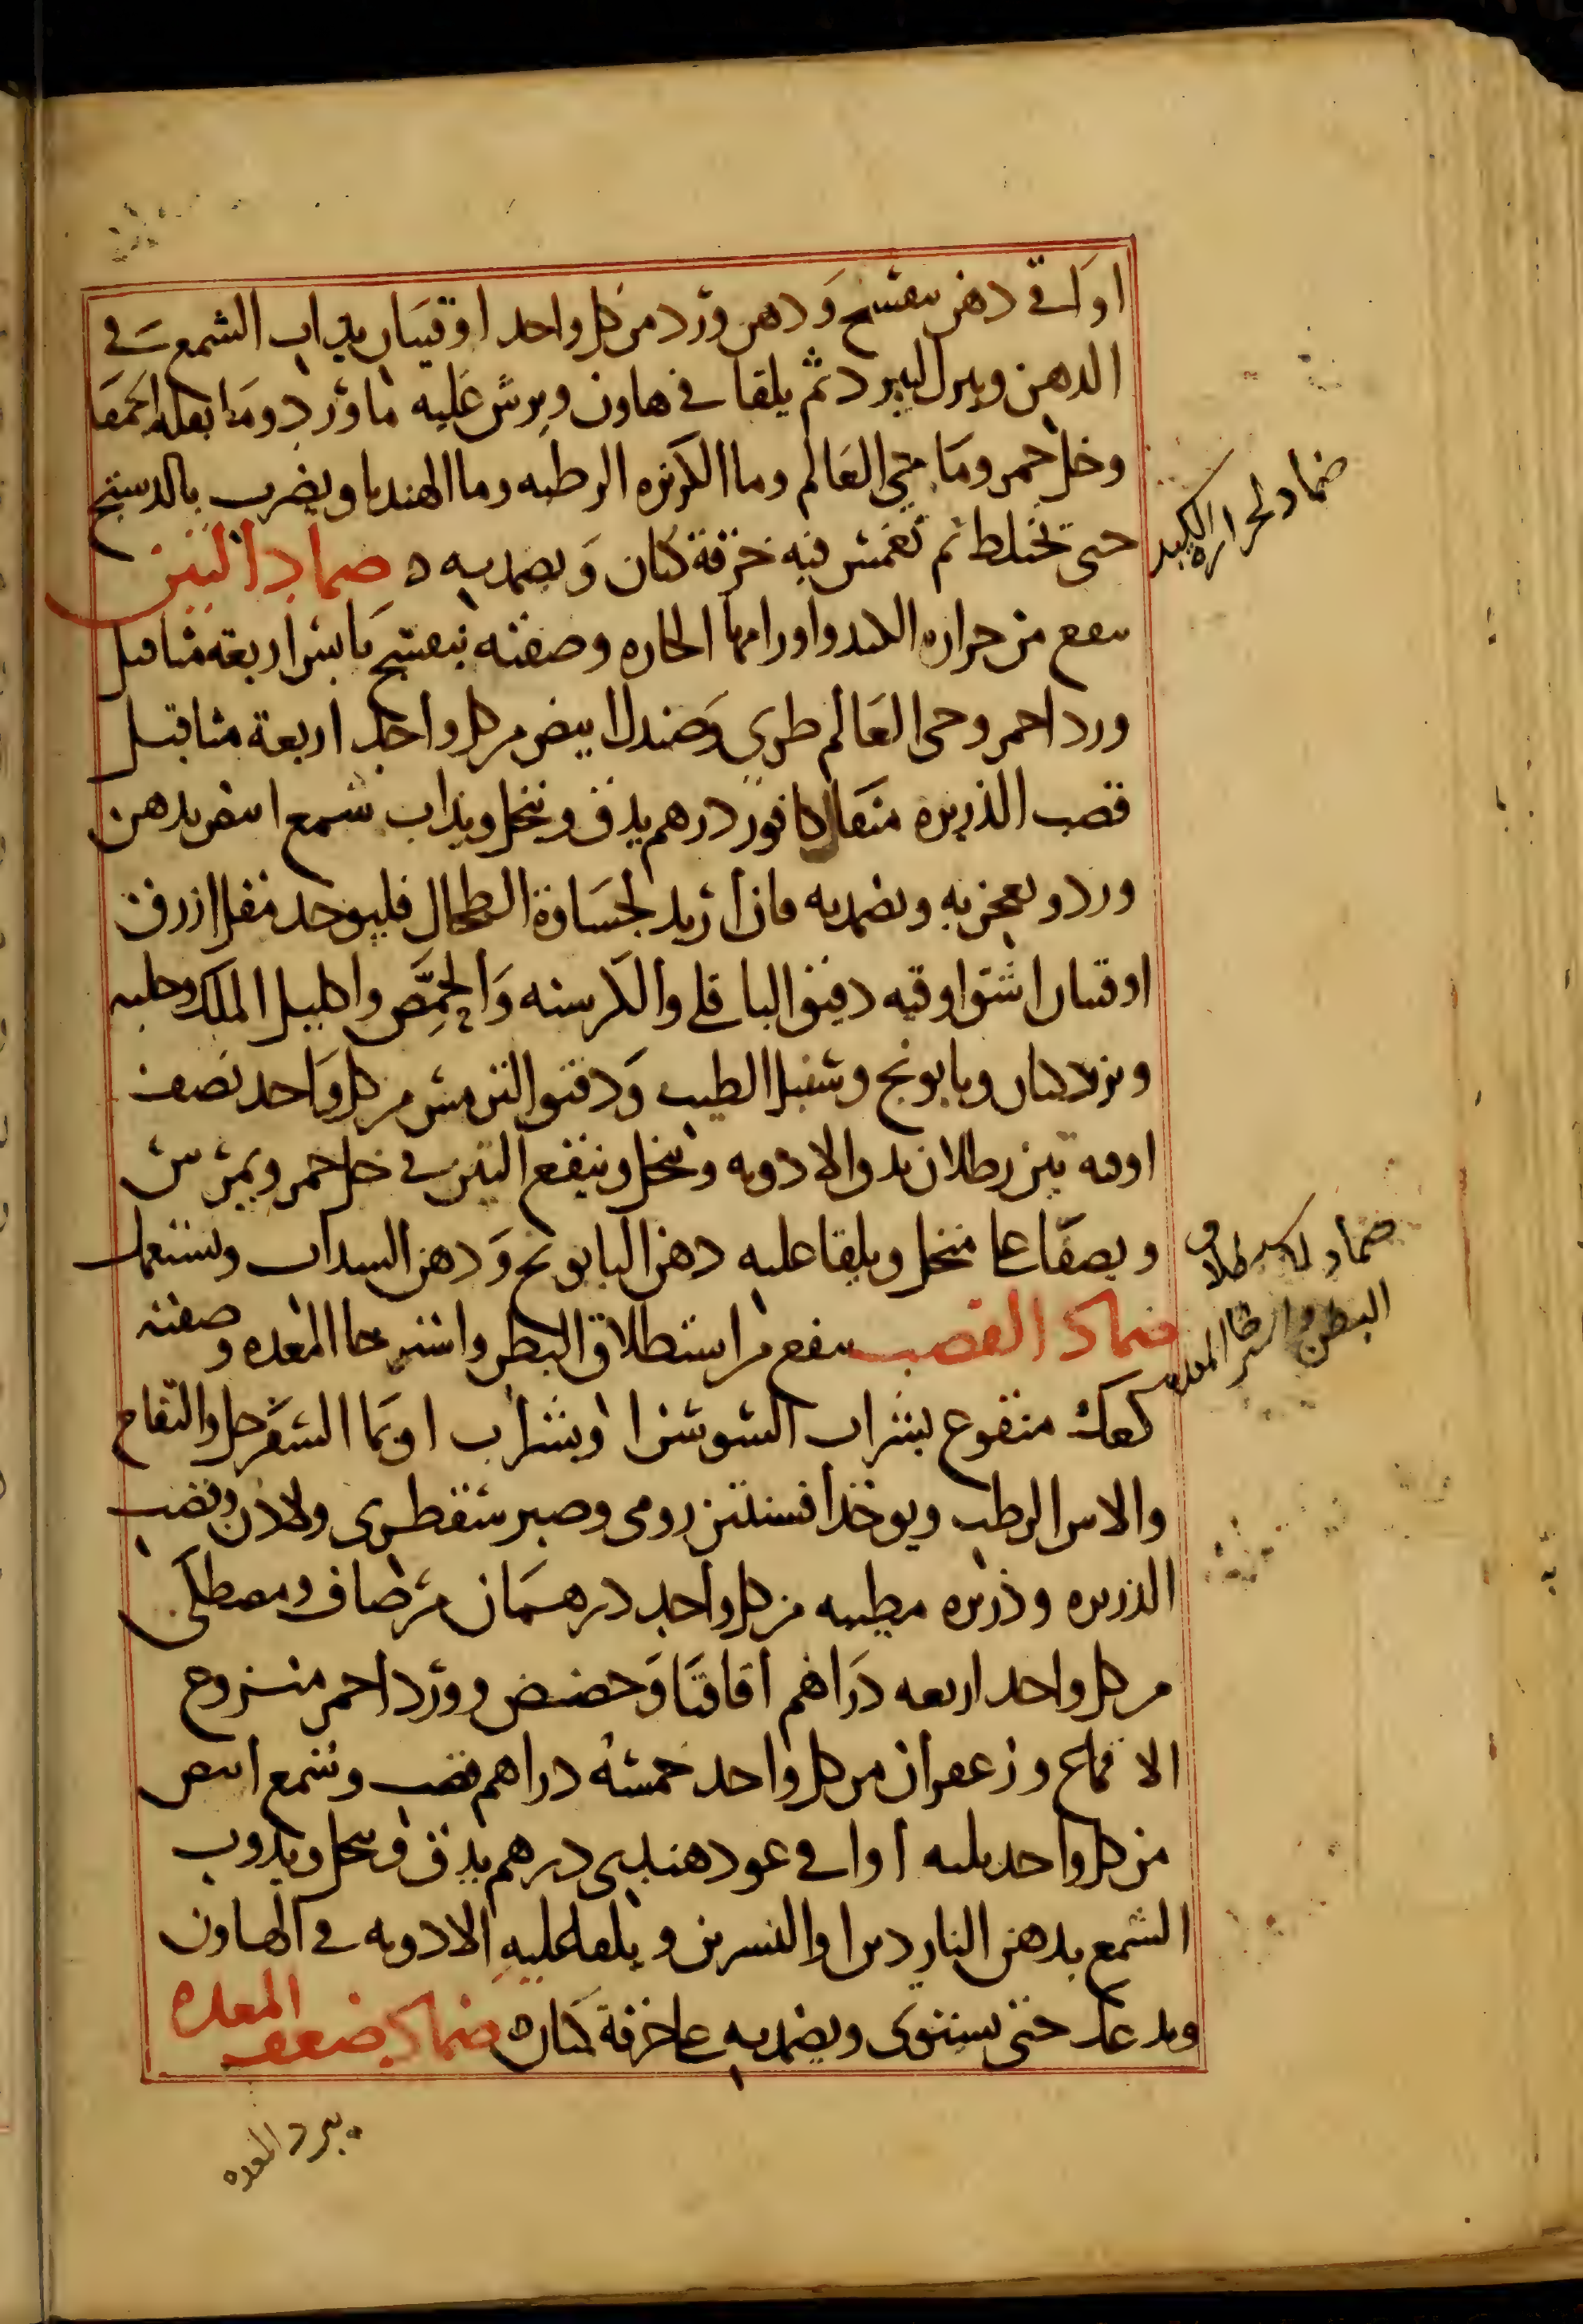 اواقي دهن بنفسج ودهن ورد من كل واحد اوقيتان يذاب الشمع في
الدهن وينزل ليبرد ثم يلقا في هاون ويرش عليه ماورد وما بقله الحمقا
وخل خمر وما حي العالم وما الكزبره الرطبه وما الهندبا ويضرب بالدستج
حتى تختلط ثم تغمس فيه خرقة كتان ويضمد به ه ضماد التين
ينفع من حرارة الكبد واورامها الحاره وصفته بنفسج يابس اربعة مثاقيل
ورد احمر وحى العالم طرى وصندل ابيض من كل واحد اربعة مثاقيل
قصب الذريره مثقال كافور درهم يدق وينخل ويذاب شمع ابيض بدهن
ورد ويعجن به ويضمد به فان اريد لجساوة الطحال فليوخد مقل ازرق
اوقيتان اشق اوقيه دقيق الباقلي والكرسنه والحمص واكليل الملك وحلبه
وبزر كتان وبابونج وسنبل الطيب ودقيق الترمس من كل واحد نصف
اوقيه تين رطلان يدق الادويه وينخل وينقع التين في خل خمر ويمرس
ويصفا عا منخل ويلقا عليه دهن البابونج ودهن السداب ويستعمل
ضماد القصب ينفع من استطلاق البطن واسترخا المعده وصفته
كعك منقوع بشراب السوسن او بشراب او بما السفرجل والتفاح
والاس الرطب ويوخذ افسنتين رومى وصبر سقطرى ولادن وقصب
الذريره وذريره مطيبه من كل واحد درهمان مر صاف ومصطكى
من كل واحد اربعه دراهم اقاقيا وحضض وورد احمر منزوع
الاقماع وزعفران من كل واحد خمسة دراهم قصب وشمع ابيض
من كل واحد ثلثه اواقي عود هندي درهم يدق وينخل ويذوب
الشمع بدهن الناردين او النسرين ويلقا عليه الادويه في الهاون
ويدعك حتى يستوى ويضمد به عا خرقة كتان ه ضماد ضعف المعده
ضماد لحرارة الكبد
ضماد استطلاق
البطن واسترخا المعده
يبرد المعده